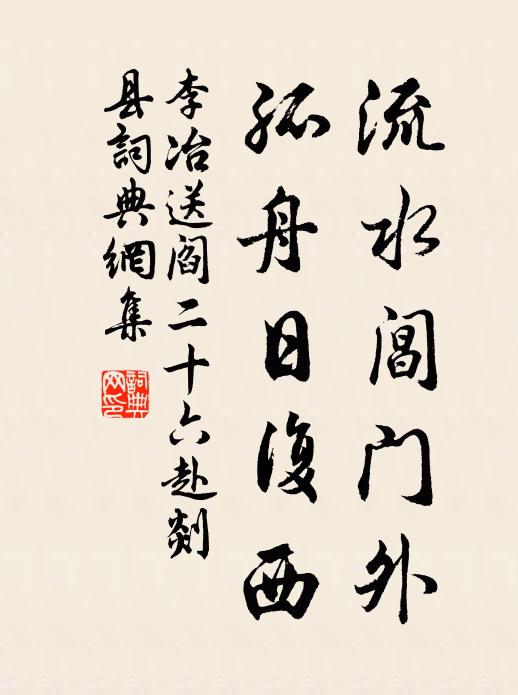 流水閶门外
孤舟日復西
李冶送阎二十六赴剡
县詞典網集
詞典网印